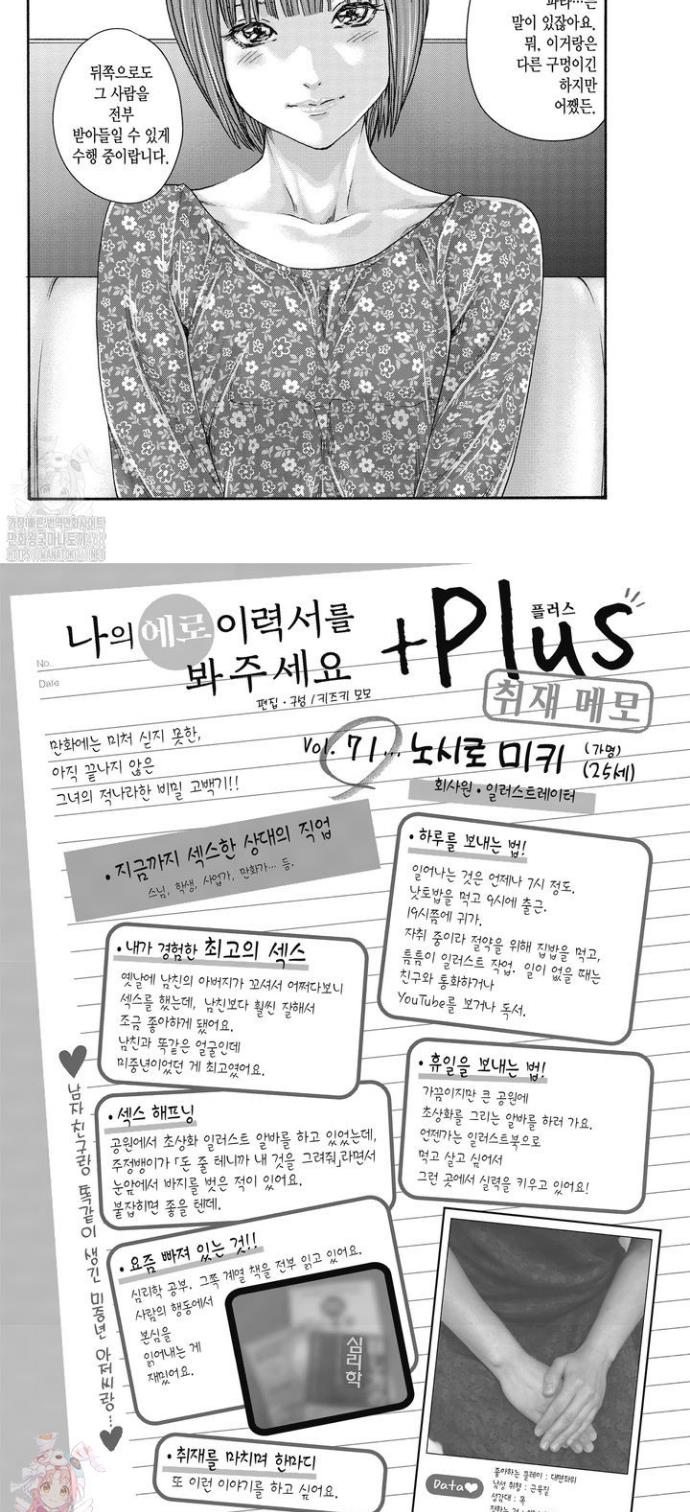 말이 있잖아요.
뭐. 이거랑은
다른 구멍이긴
하지만
어쨌든.
뒤쪽으로도
그 사람을
전부
받아들일 수 있게
수행 중이랍니다.
가장 빠른 번역만화사이트
만화왕국마나토끼
HTTPS://MANATOKI
나의 에로 이력서를
봐 주세요
+Plus
플러스
취재 메모
No.
Date
편집·구성 / 키즈키 모모
만화에는 미처 싣지 못한,
아직 끝나지 않은
그녀의 적나라한 비밀 고백기!!
Vol. 71... 노시로 미키 (가명)
(25세)
회사원·일러스트레이터
·지금까지 섹스한 상대의 직업
스님, 학생, 사업가, 만화가... 등.
·하루를 보내는 법!
일어나는 것은 언제나 7시 정도.
낫토밥을 먹고 9시에 출근.
19시쯤에 귀가.
자취 중이라 절약을 위해 집밥을 먹고,
틈틈이 일러스트 작업. 일이 없을 때는
친구와 통화하거나
YouTube를 보거나 독서.
·내가 경험한 최고의 섹스
옛날에 남친의 아버지가 꼬셔서 어쩌다보니
섹스를 했는데, 남친보다 훨씬 잘해서
조금 좋아하게 됐어요.
남친과 똑같은 얼굴인데
미중년이었던 게 최고였어요.
·휴일을 보내는 법!
가끔이지만 큰 공원에
초상화를 그리는 알바를 하러 가요.
언젠가는 일러스트북으로
먹고 살고 싶어서
그런 곳에서 실력을 키우고 있어요!
·섹스 해프닝
공원에서 초상화 일러스트 알바를 하고 있었는데,
주정뱅이가 「돈 줄 테니까 내 것을 그려줘」라면서
눈앞에서 바지를 벗은 적이 있어요.
붙잡히면 좋을 텐데.
♥남자 친구랑 똑같이 생긴 미중년 아저씨랑...♥
·요즘 빠져 있는 것!!
심리학 공부. 그쪽 계열 책을 전부 읽고 있어요.
사람의 행동에서
본심을
읽어내는 게
재밌어요.
심리학
·취재를 마치며 한마디
또 이런 이야기를 하고 싶어요.
Data♥
좋아하는 플레이 : 대면좌위
남성 취향 : 근육질
성감대 : 목